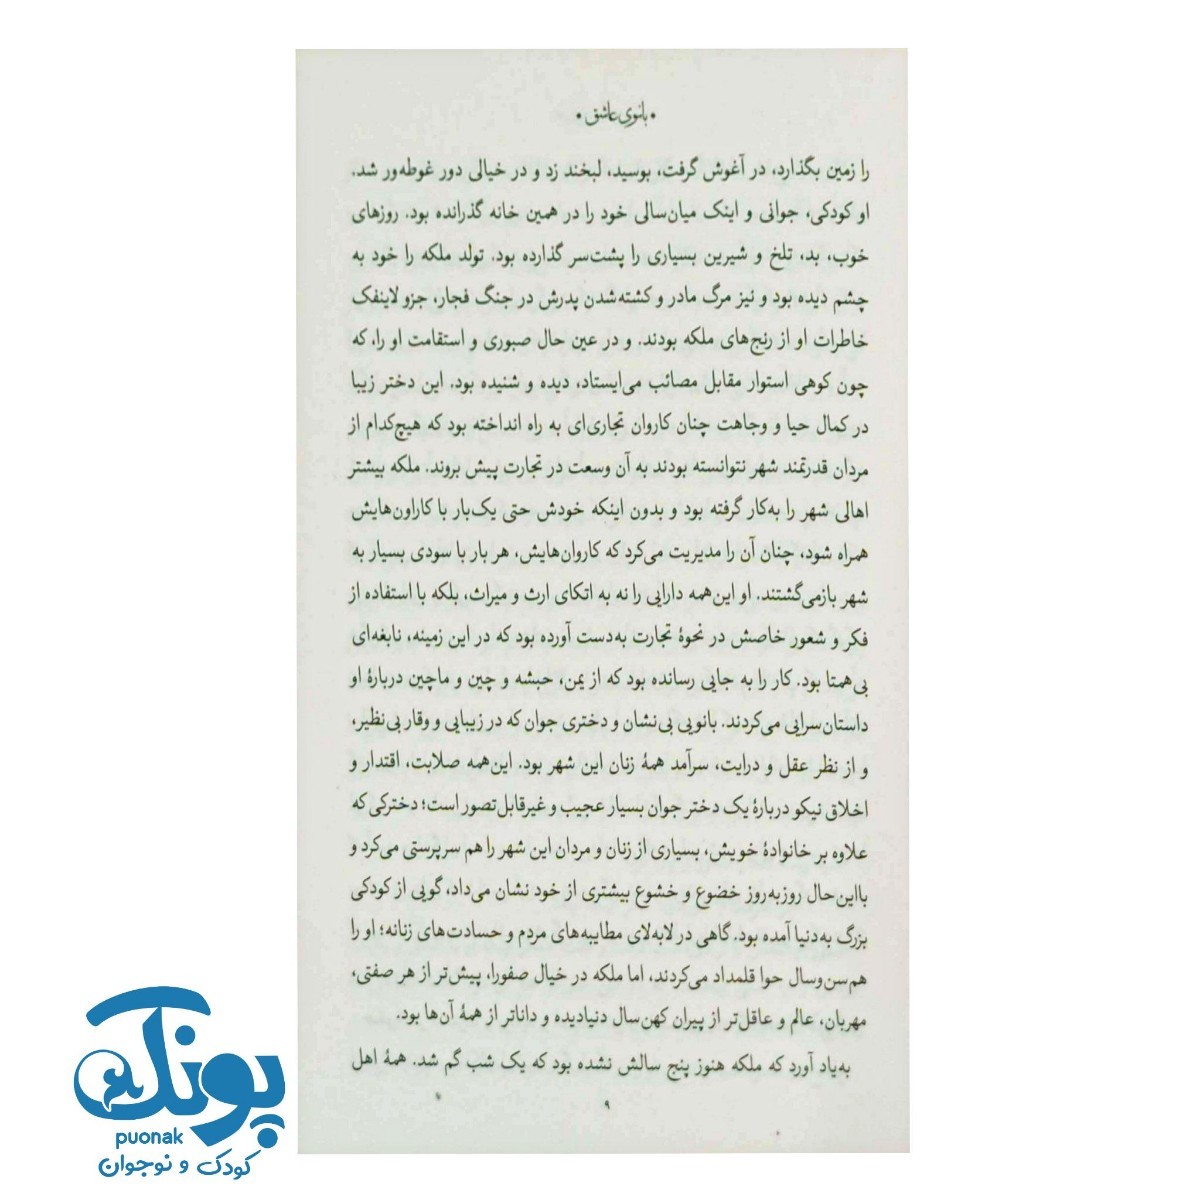 • بانوی عاشق •
را زمین بگذارد، در آغوش گرفت، بوسید، لبخند زد و در خیالی دور غوطه‌ور شد.
او کودکی، جوانی و اینک میان‌سالی خود را در همین خانه گذرانده بود. روزهای
خوب، بد، تلخ و شیرین بسیاری را پشت‌سر گذارده بود. تولد ملکه را خود به
چشم دیده بود و نیز مرگ مادر و کشته‌شدن پدرش در جنگ فجار، جزو لاینفک
خاطرات او از رنج‌های ملکه بودند. و در عین حال صبوری و استقامت او را، که
چون کوهی استوار مقابل مصائب می‌ایستاد، دیده و شنیده بود. این دختر زیبا
در کمال حیا و وجاهت چنان کاروان تجاری‌ای به راه انداخته بود که هیچ‌کدام از
مردان قدرتمند شهر نتوانسته بودند به آن وسعت در تجارت پیش بروند. ملکه بیشتر
اهالی شهر را به‌کار گرفته بود و بدون اینکه خودش حتی یک‌بار با کاراون‌هایش
همراه شود، چنان آن را مدیریت می‌کرد که کاروان‌هایش، هر بار با سودی بسیار به
شهر بازمی‌گشتند. او این‌همه دارایی را نه به اتکای ارث و میراث، بلکه با استفاده از
فکر و شعور خاصش در نحوهٔ تجارت به‌دست آورده بود که در این زمینه، نابغه‌ای
بی‌همتا بود. کار را به جایی رسانده بود که از یمن، حبشه و چین و ماچین دربارهٔ او
داستان‌سرایی می‌کردند. بانویی بی‌نشان و دختری جوان که در زیبایی و وقار بی‌نظیر،
و از نظر عقل و درایت، سرآمد همهٔ زنان این شهر بود. این‌همه صلابت، اقتدار و
اخلاق نیکو دربارهٔ یک دختر جوان بسیار عجیب و غیرقابل‌تصور است؛ دخترکی که
علاوه بر خانوادهٔ خویش، بسیاری از زنان و مردان این شهر را هم سرپرستی می‌کرد و
بااین‌حال روزبه‌روز خضوع و خشوع بیشتری از خود نشان می‌داد، گویی از کودکی
بزرگ به‌دنیا آمده بود. گاهی در لابه‌لای مطایبه‌های مردم و حسادت‌های زنانه؛ او را
هم‌سن‌وسال حوا قلمداد می‌کردند، اما ملکه در خیال صفورا، پیش‌تر از هر صفتی،
مهربان، عالم و عاقل‌تر از پیران کهن‌سال دنیادیده و داناتر از همهٔ آن‌ها بود.
به‌یاد آورد که ملکه هنوز پنج سالش نشده بود که یک شب گم شد. همهٔ اهل
۹
پونک
puonak
کودک و نوجوان